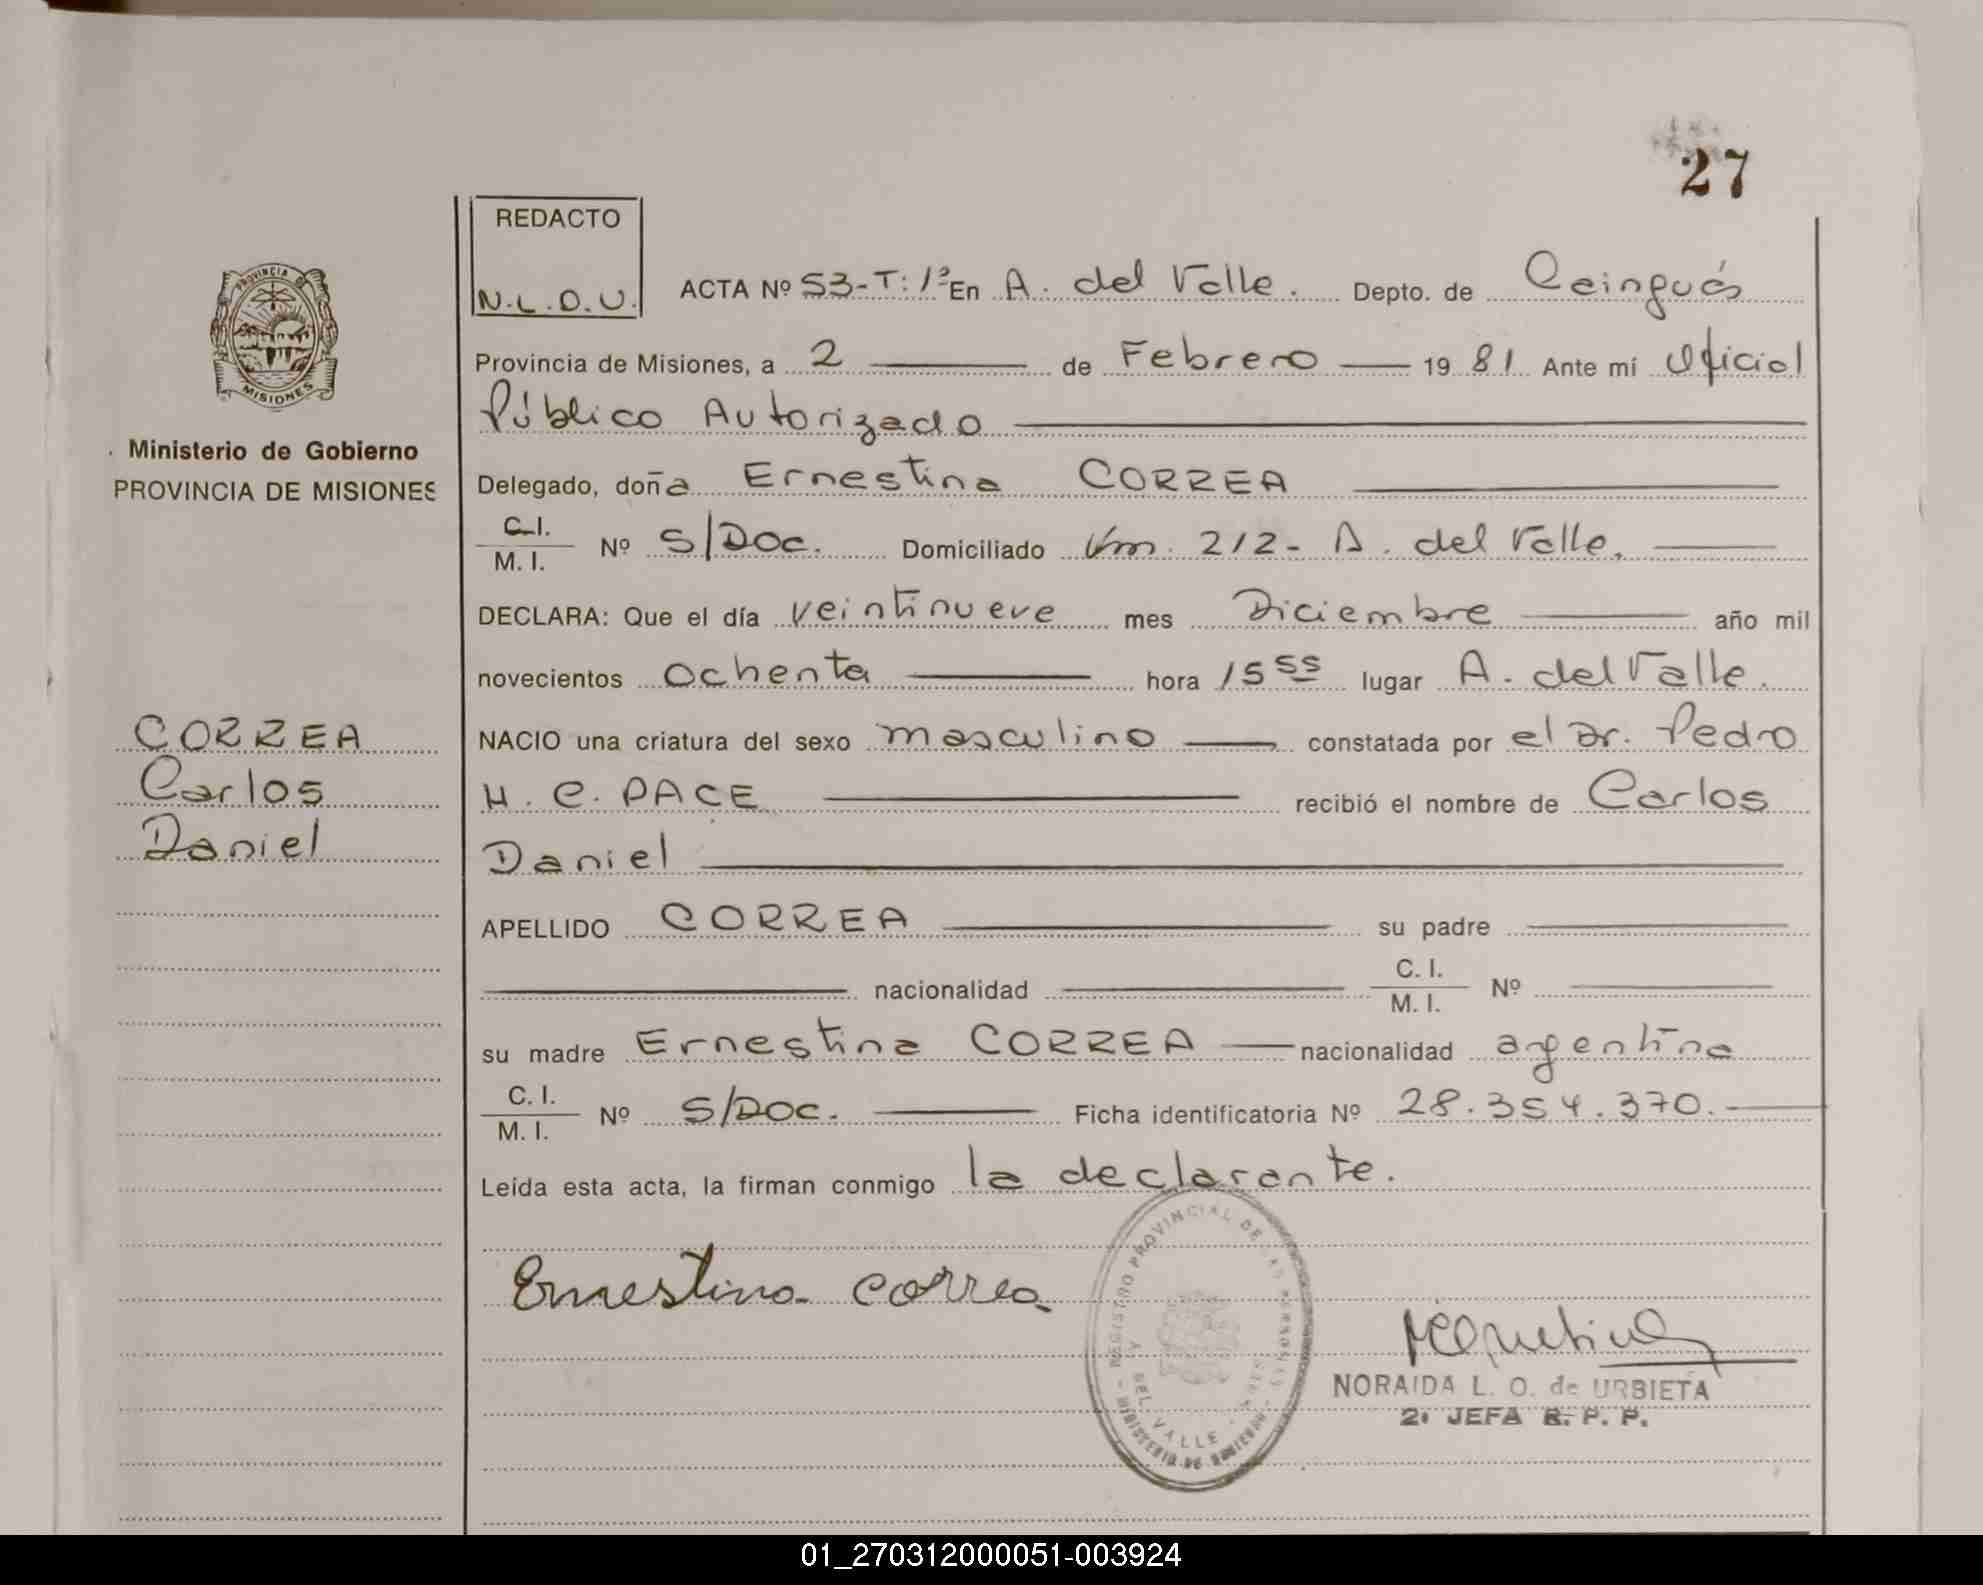 27
REDACTO
N.L.O.U.
ACTA Nº 53-T: 1º En A. del Valle. Depto. de Cainguás
Provincia de Misiones, a 2 de Febrero 19 81 Ante mí Oficial
Público Autorizado
Delegado, doña Ernestina CORREA
C.I.
M.I. Nº S/Doc. Domiciliado Km. 212- A. del Valle.
DECLARA: Que el día veintinueve mes Diciembre año mil
novecientos ochenta hora 15 55 lugar A. del Valle.
NACIO una criatura del sexo masculino constatada por el Dr. Pedro
H. C. PACE recibió el nombre de Carlos
Daniel
APELLIDO CORREA su padre
nacionalidad C. I.
M. I. Nº
su madre Ernestina CORREA nacionalidad argentina
C. I.
M. I. Nº S/Doc. Ficha identificatoria Nº 28.354.370.
Leída esta acta, la firman conmigo la declarante.
Ernestina Correa
NORAIDA L. O. de URBIETA
2ª JEFA R. P. P.
REGISTRO PROVINCIAL DE LAS PERSONAS
DEL VALLE
MINISTERIO DE GOBIERNO
PROVINCIA DE
MISIONES
Ministerio de Gobierno
PROVINCIA DE MISIONES
CORREA
Carlos
Daniel
01_270312000051-003924